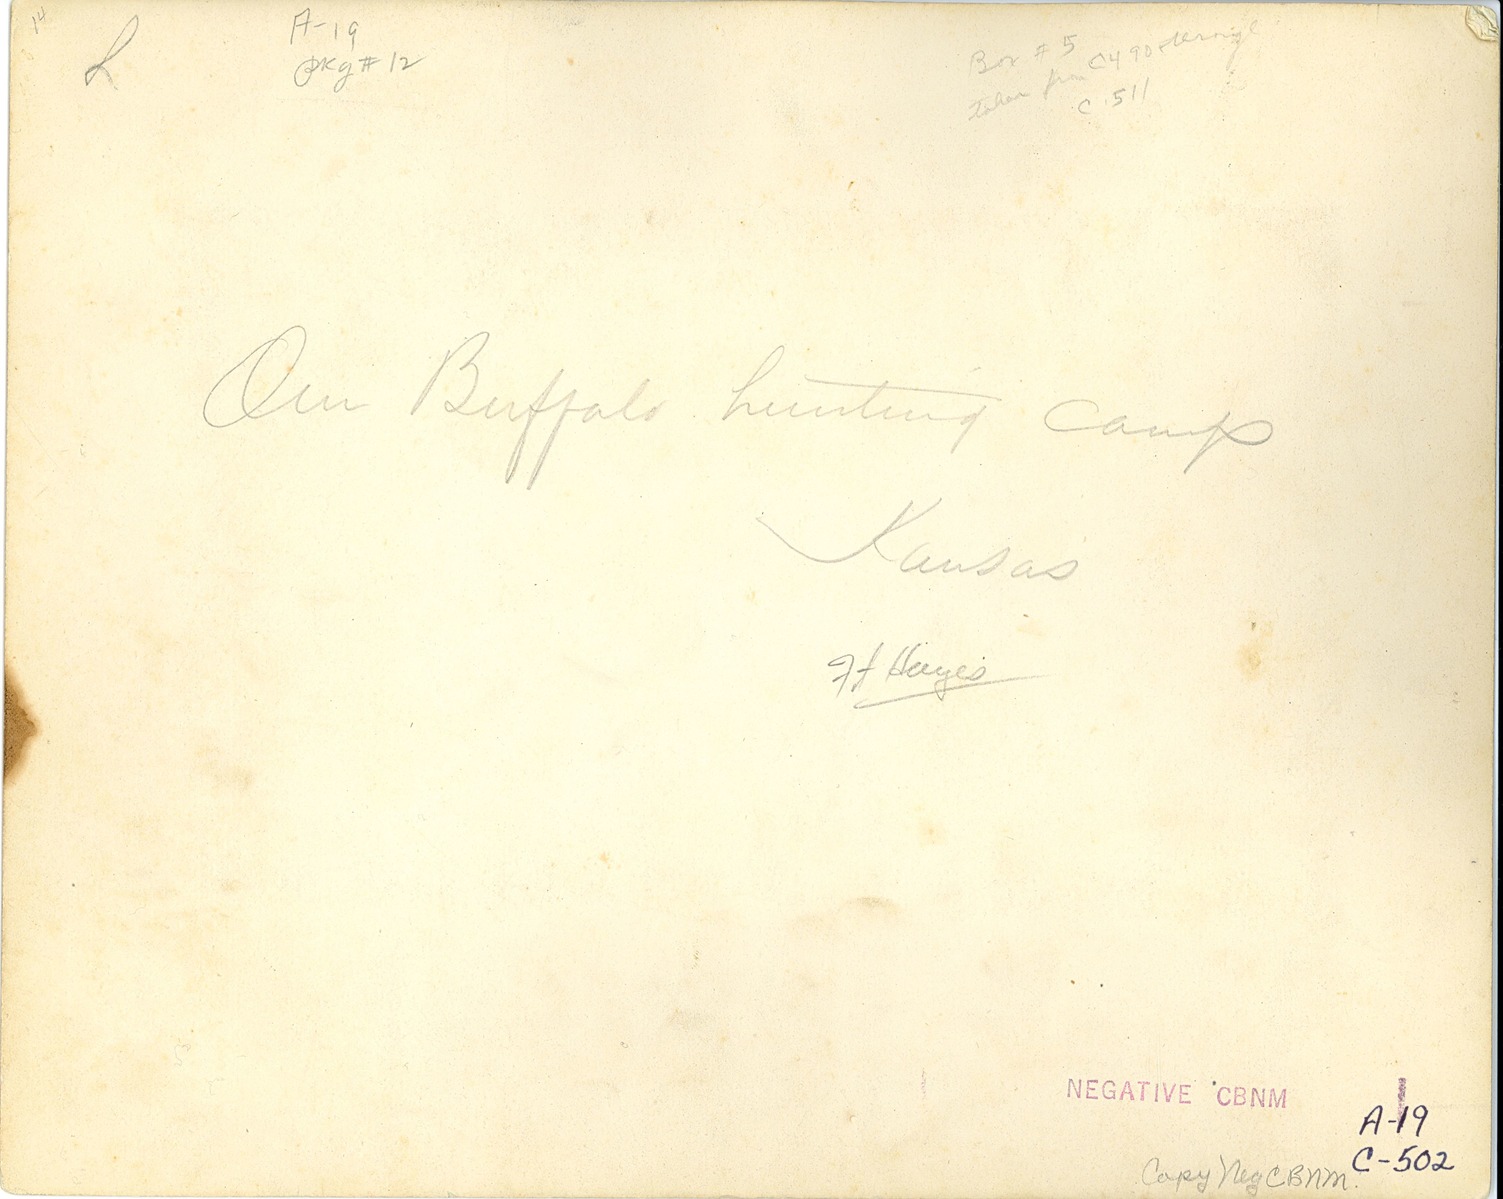 14
A-19
pkg # 12
Box # 5
taken from C490 through
C 511
Our Buffalo hunting camp
Kansas
Ft Hayes
NEGATIVE CBNM
A-19
C-502
Copy Neg CBNM.